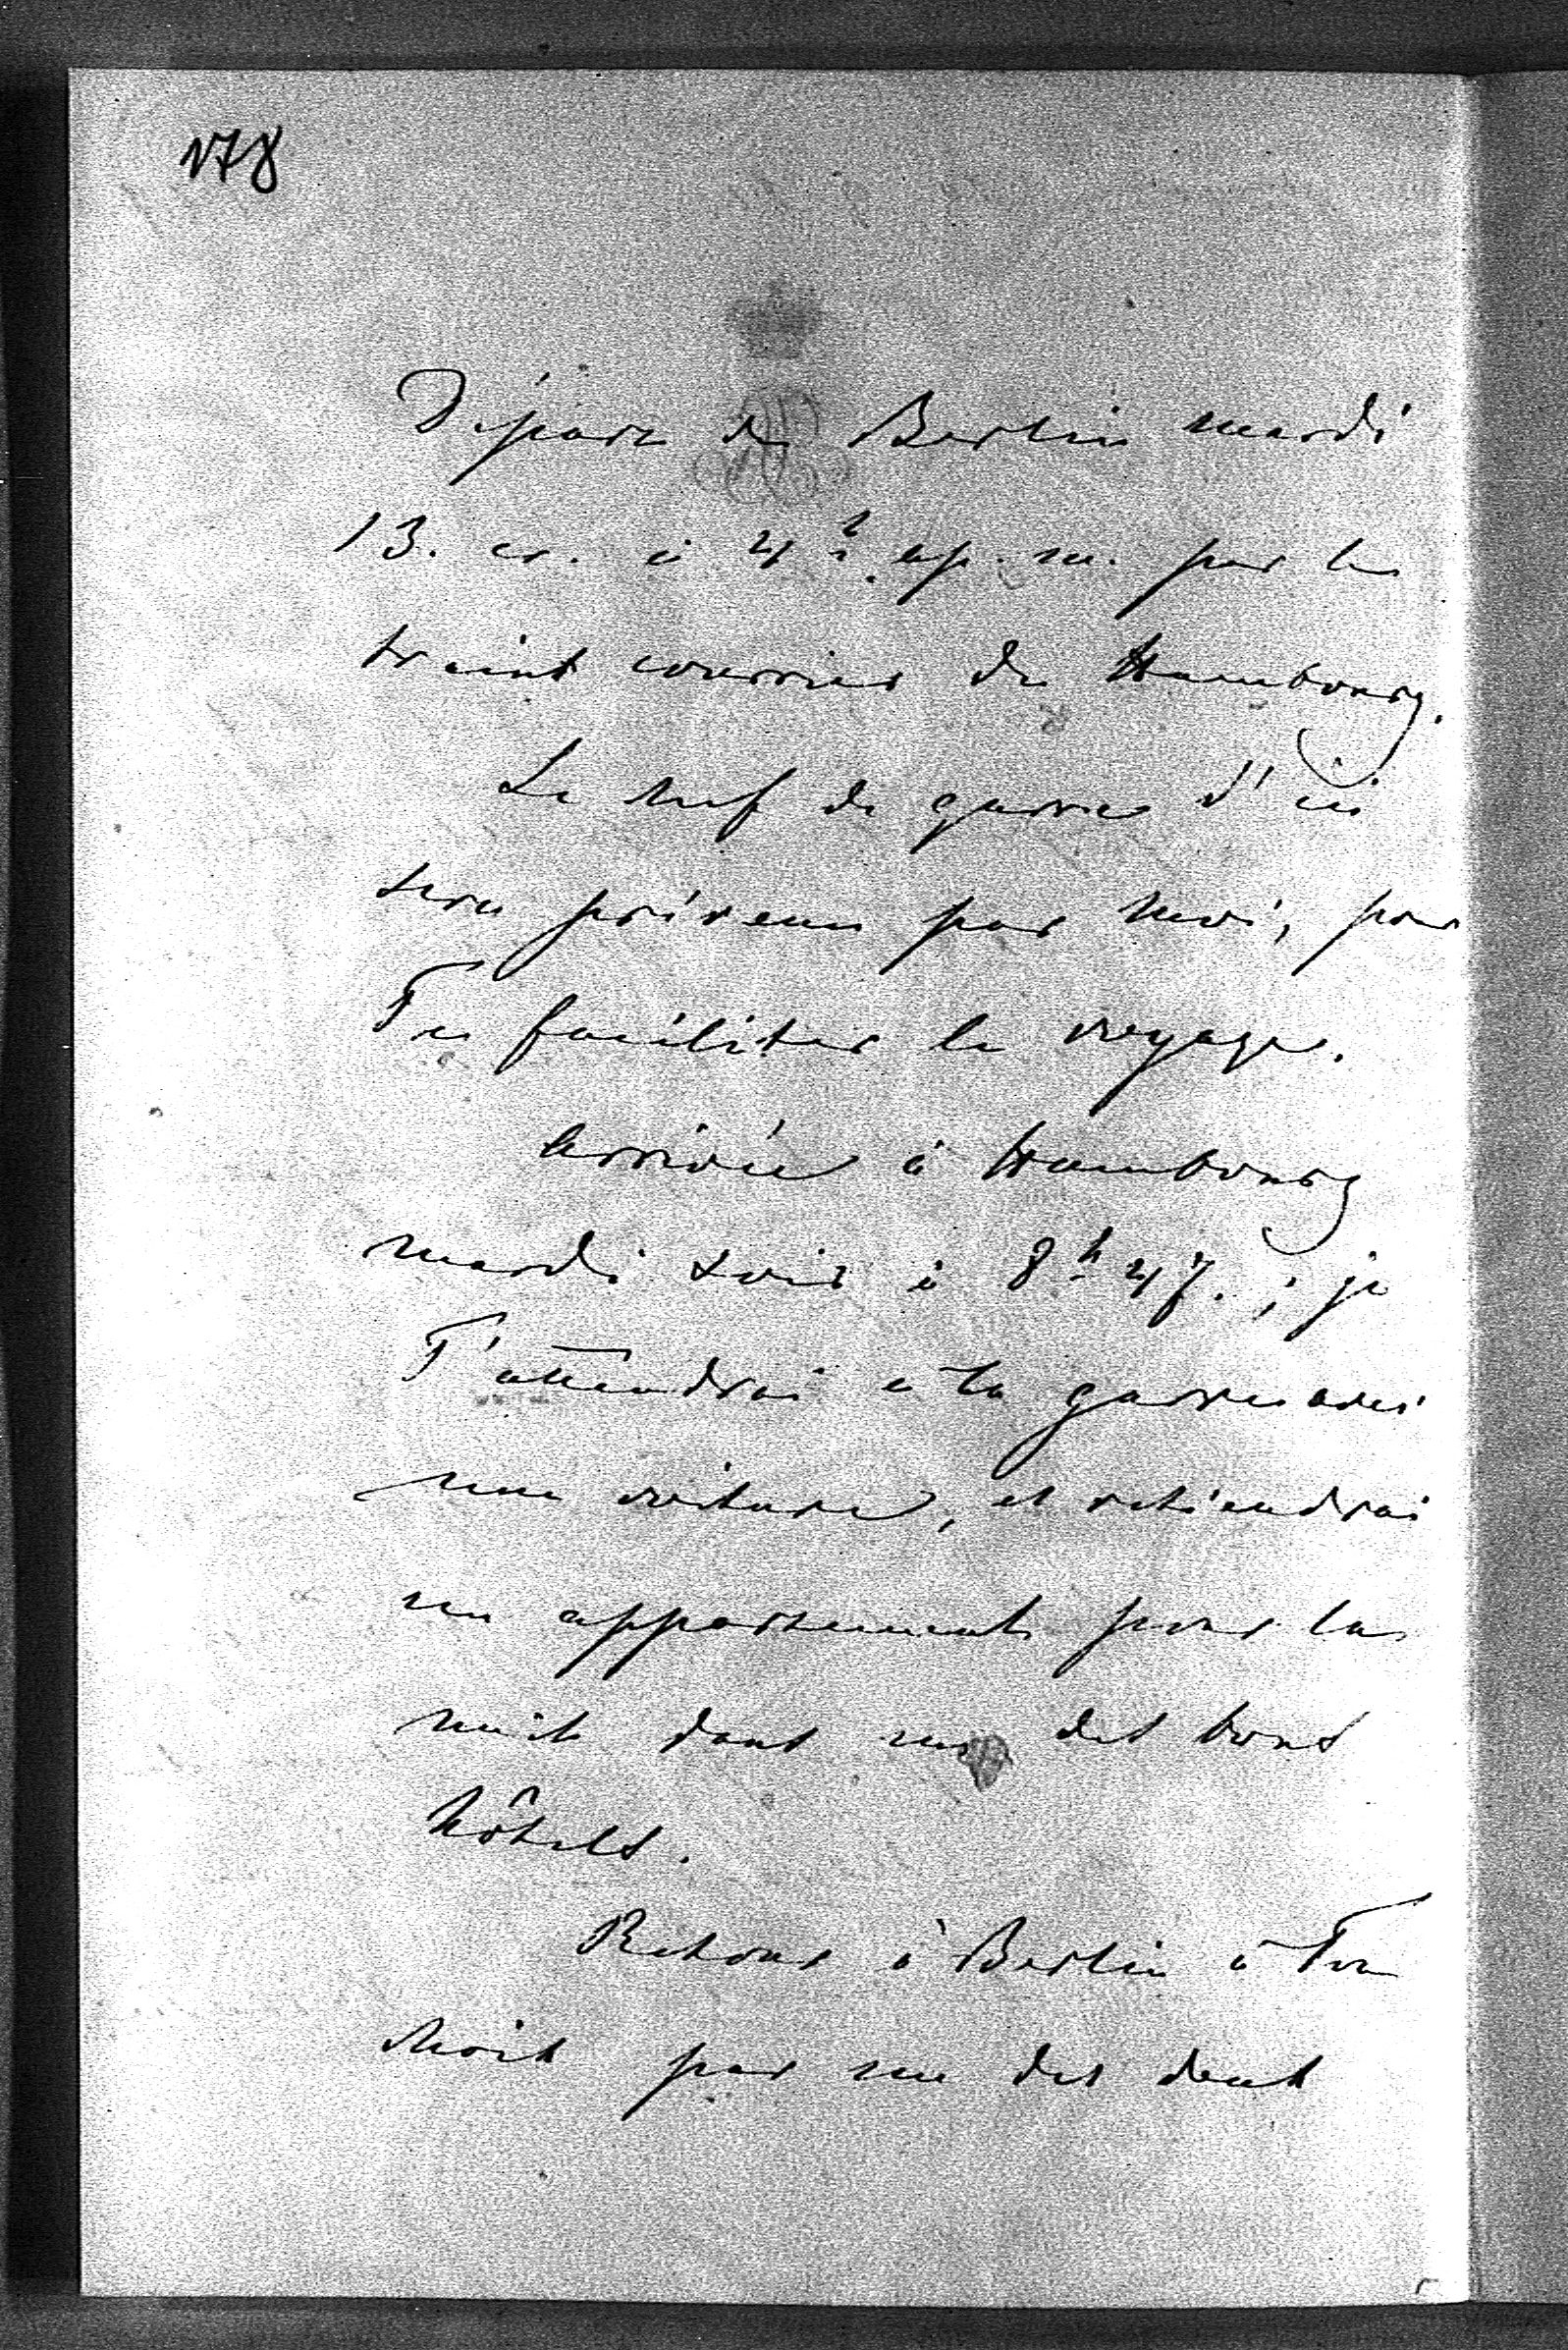 178
Départ de Berlin mardi
13. cr. à 4 h. ap. m. par le
traint courrier de Hambourg.
Le chef de garre d'ici
sera prévenu par moi, pour
Te faciliter le voyage.
Arrivée à Hambourg
mardi soir à 8 h 47. ; je
T'attendrai à la garre avec
une voiture, et retiendrai
un appartement pour la
nuit dans un des bons
hôtels.
Retour à Berlin à Ton
choix par un des deux